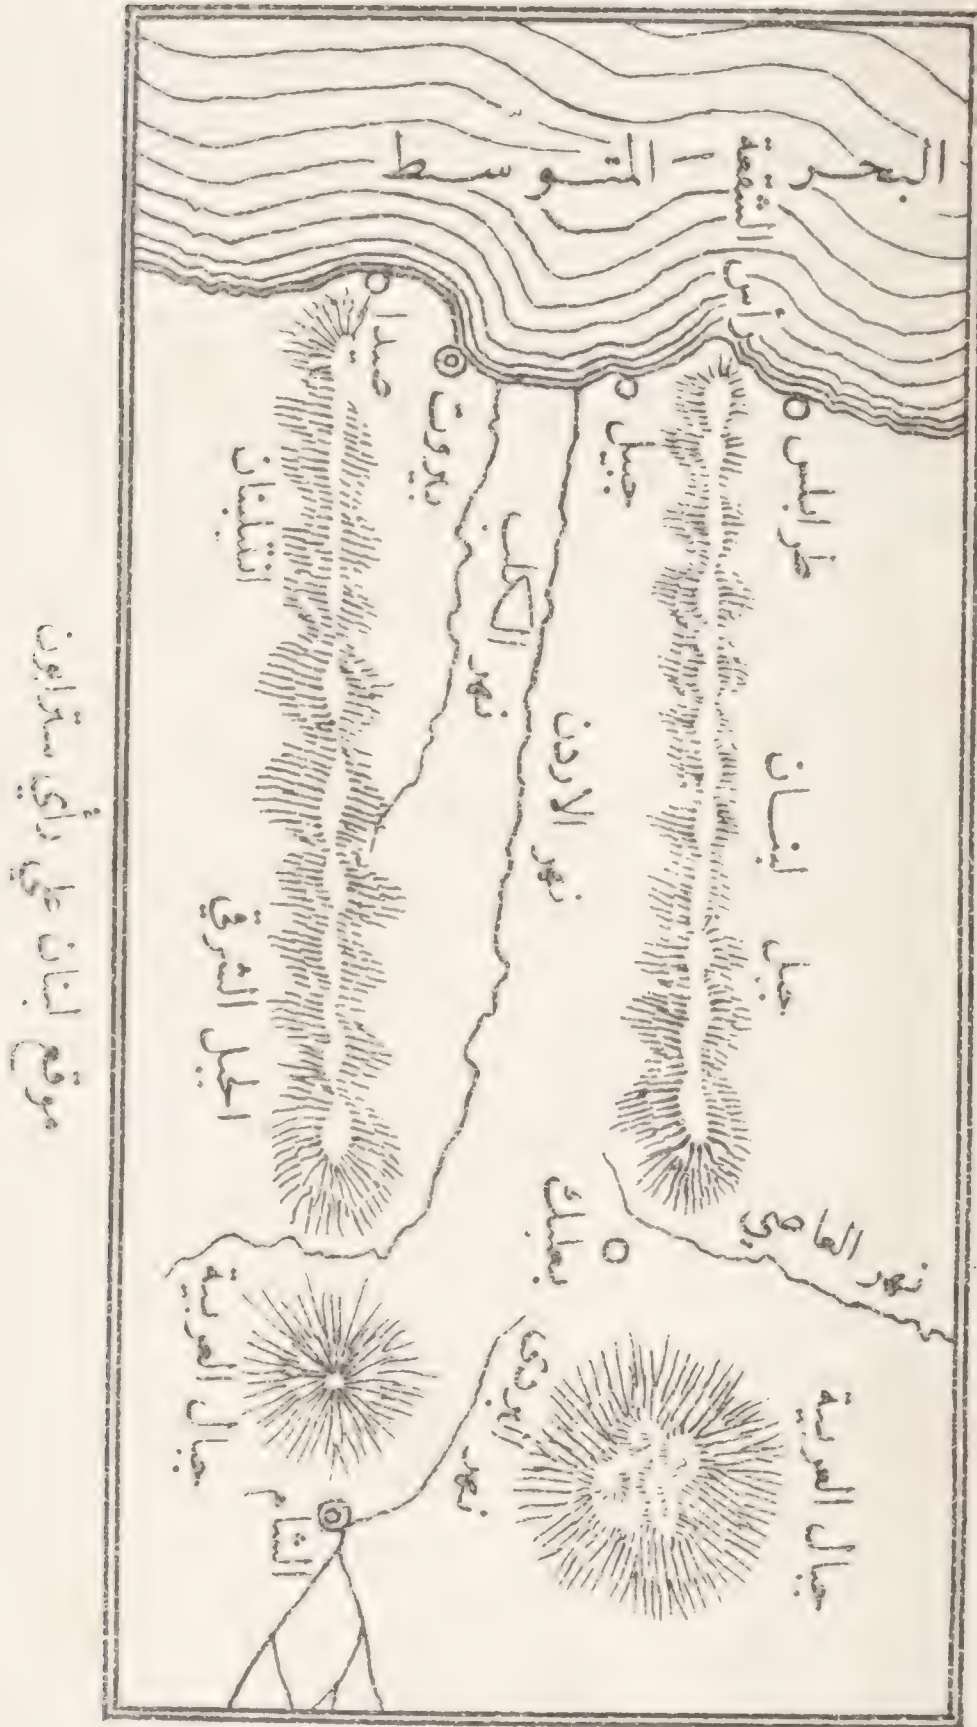 البحر - المتوسط
رأس الشقعة
طرابلس
جبيل
بيروت
صيدا
نهر الكلب
نهر الاردن
جبل لبنان
انتيلبنان
الجبل الشرقي
نهر العاصي
بعلبك
نهر بردى
جبال العربية
جبال العربية
الشام
موقع لبنان على رأي سترابون